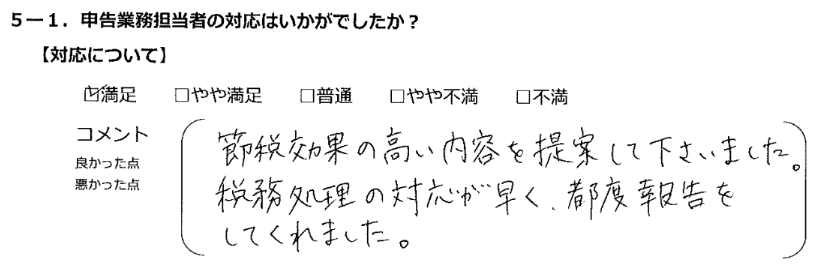 5－1．申告業務担当者の対応はいかがでしたか？
【対応について】
☑満足 □やや満足 □普通 □やや不満 □不満
コメント
良かった点
悪かった点
節税効果の高い内容を提案して下さいました。
税務処理の対応が早く、都度報告を
してくれました。